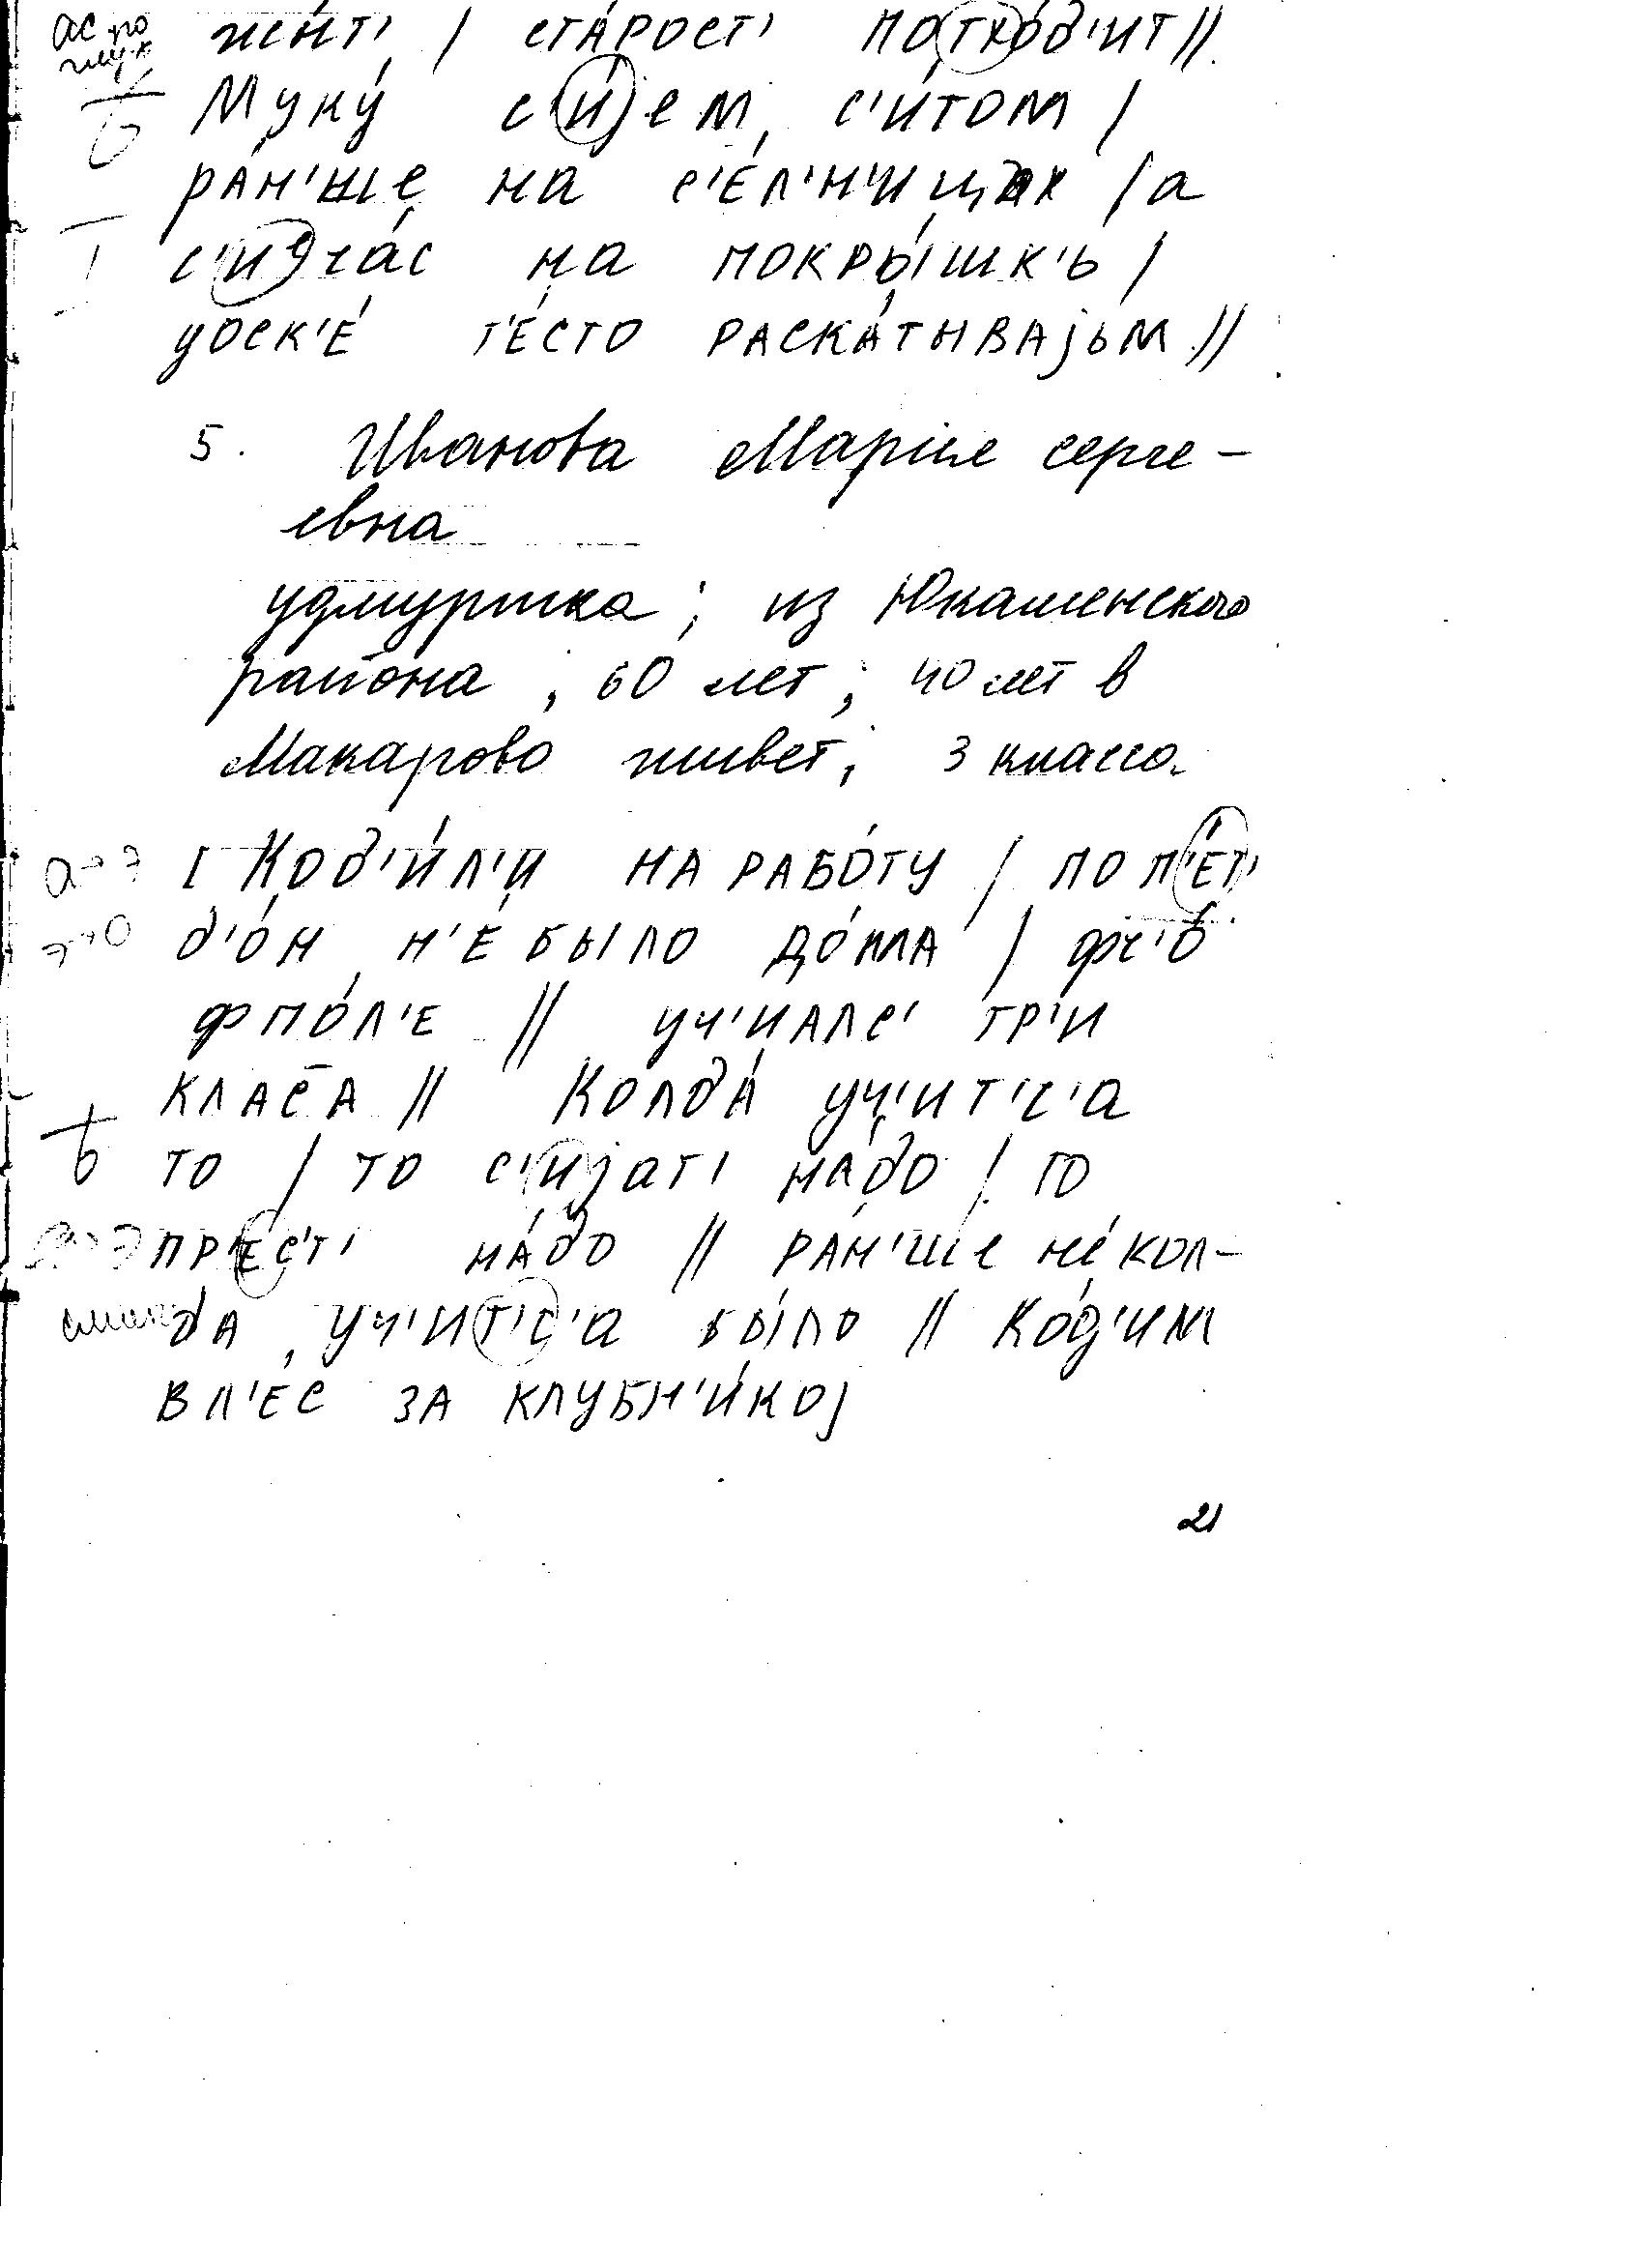 жы́т' / ста́рост' потхо́д'ит //
Муку́ с'и́јем с'и́том /
ра́н'ше на с'е́л'н'ицах / а
с'ича́с на покры́шк'ь /
доск'е́ т'е́сто раска́тывајьм //
5. Иванова Мария Серге-
евна
удмуртка; из Юкаменского
района, 60 лет; 40 лет в
Макарово живет; 3 класса.
а→э [Код'и́л'и на рабо́ту / по п'е́т'
э→о д'о́н н'е́ было до́ма / фс'о
фпо́л'е // уч'и́алс' тр'и
кла́са // Колда́ уч'и́т'с'а
то / то с'и́јат' на́до / то
пр'е́с'т' на́до // ра́н'ше не́кол-
да уч'и́т'с'а бы́ло // Ко́д'им
вл'е́с за клубн'и́кој
21